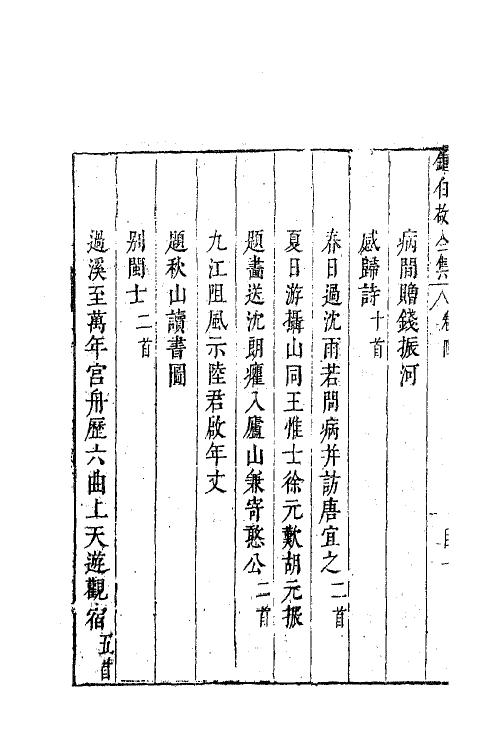 鍾伯敬全集 卷四
病間贈錢振河
感歸詩十首
春日過沈雨若問病并訪唐宜之二首
夏日游攝山同王惟士徐元歎胡元振
題畫送沈朗癯入廬山兼寄憨公二首
九江阻風示陸君啟年丈
題秋山讀書圖
別閩士二首
過溪至萬年宮舟歷六曲上天遊觀宿五首